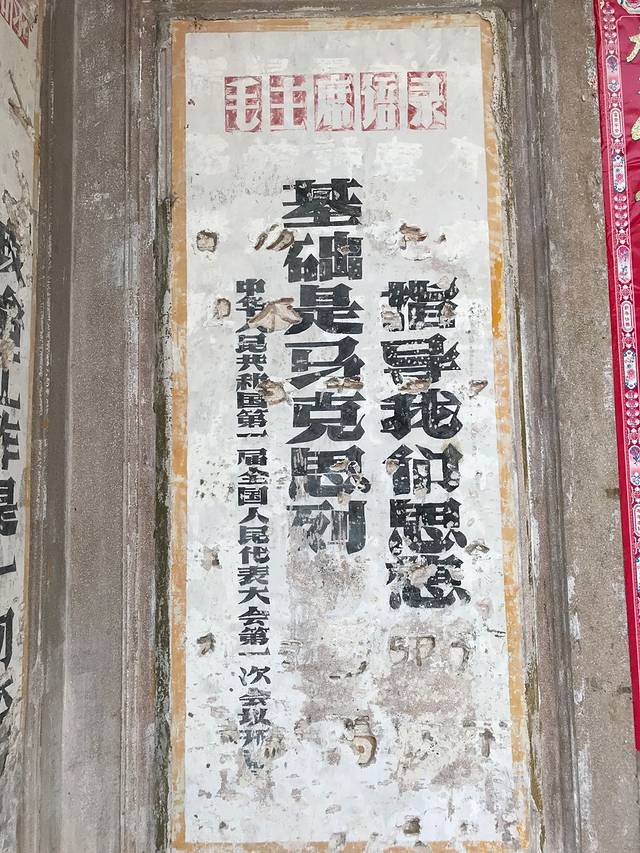 毛主席语录
指导我们思想
基础是马克思列
中华人民共和国第一届全国人民代表大会第一次会议开
工作是一